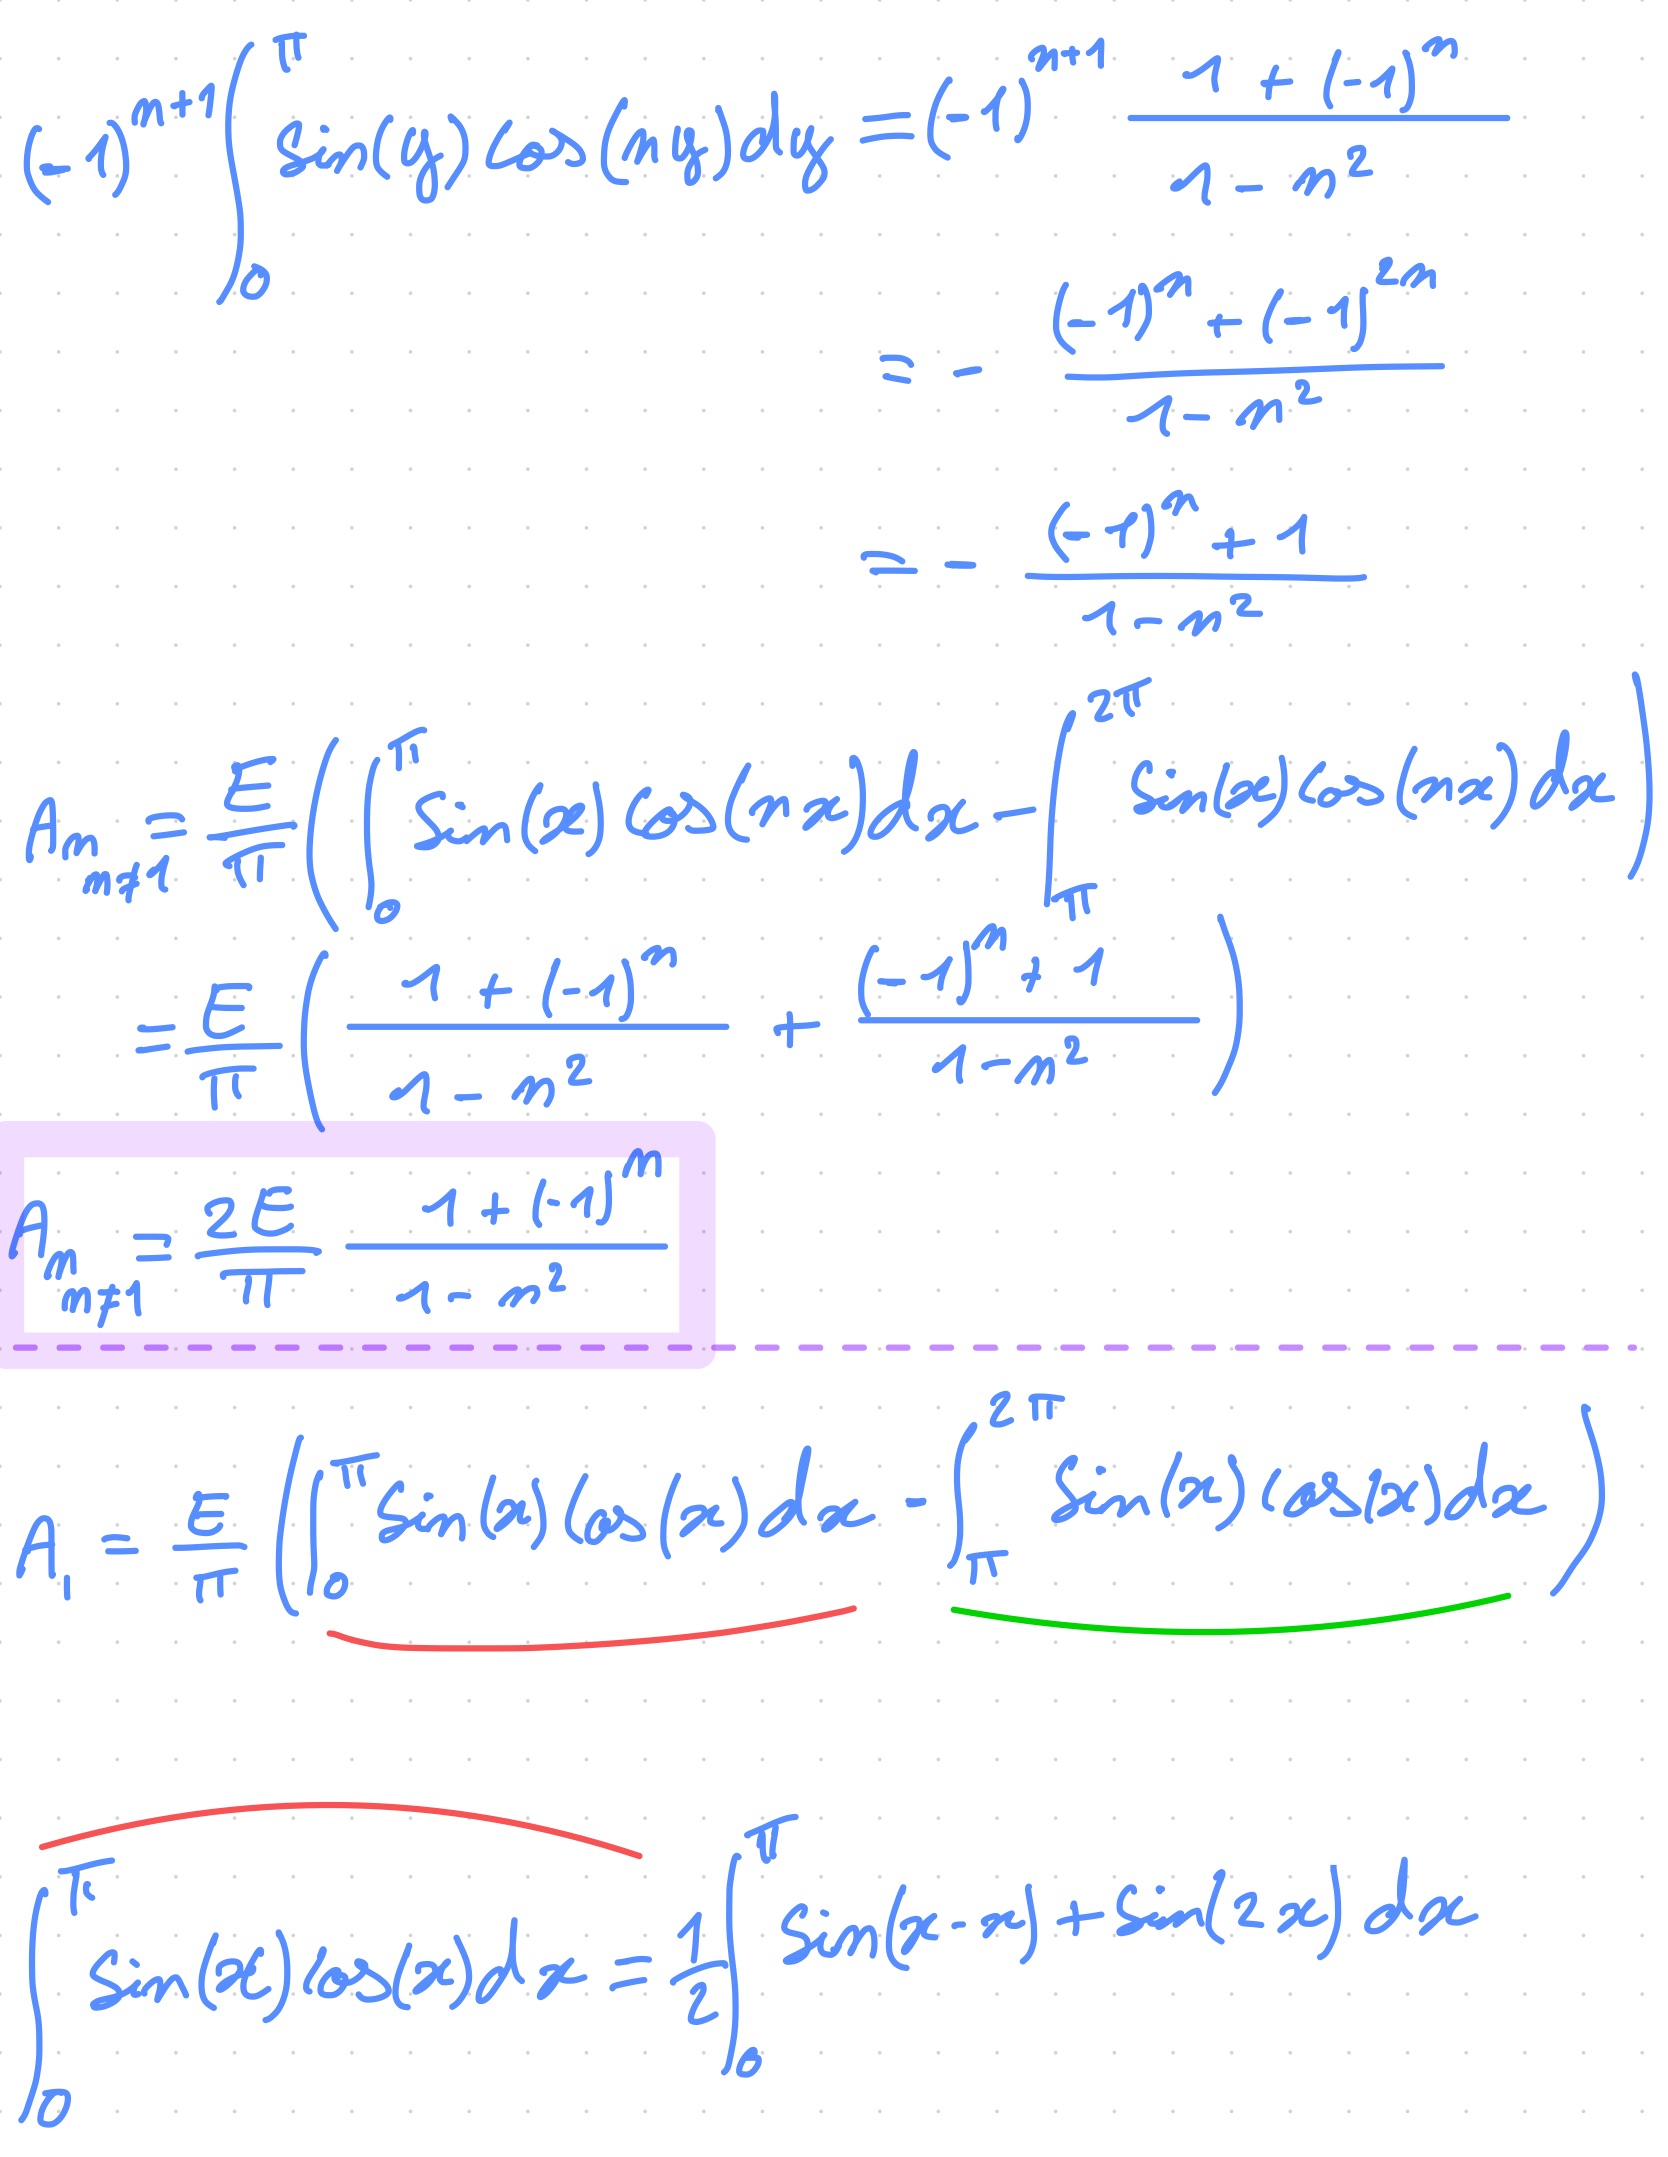 (-1)^{n+1} ∫_0^π sin(y) cos(ny) dy = (-1)^{n+1} \frac{1 + (-1)^n}{1 - n^2}
= - \frac{(-1)^n + (-1)^{2n}}{1 - n^2}
= - \frac{(-1)^n + 1}{1 - n^2}
A_{n_{n≠1}} = \frac{E}{π} ( ∫_0^π sin(x) cos(nx) dx - ∫_π^{2π} sin(x) cos(nx) dx )
= \frac{E}{π} ( \frac{1 + (-1)^n}{1 - n^2} + \frac{(-1)^n + 1}{1 - n^2} )
A_{n_{n≠1}} = \frac{2E}{π} \frac{1 + (-1)^n}{1 - n^2}
A_1 = \frac{E}{π} ( ∫_0^π sin(x) cos(x) dx - ∫_π^{2π} sin(x) cos(x) dx )
∫_0^π sin(x) cos(x) dx = \frac{1}{2} ∫_0^π sin(x-x) + sin(2x) dx